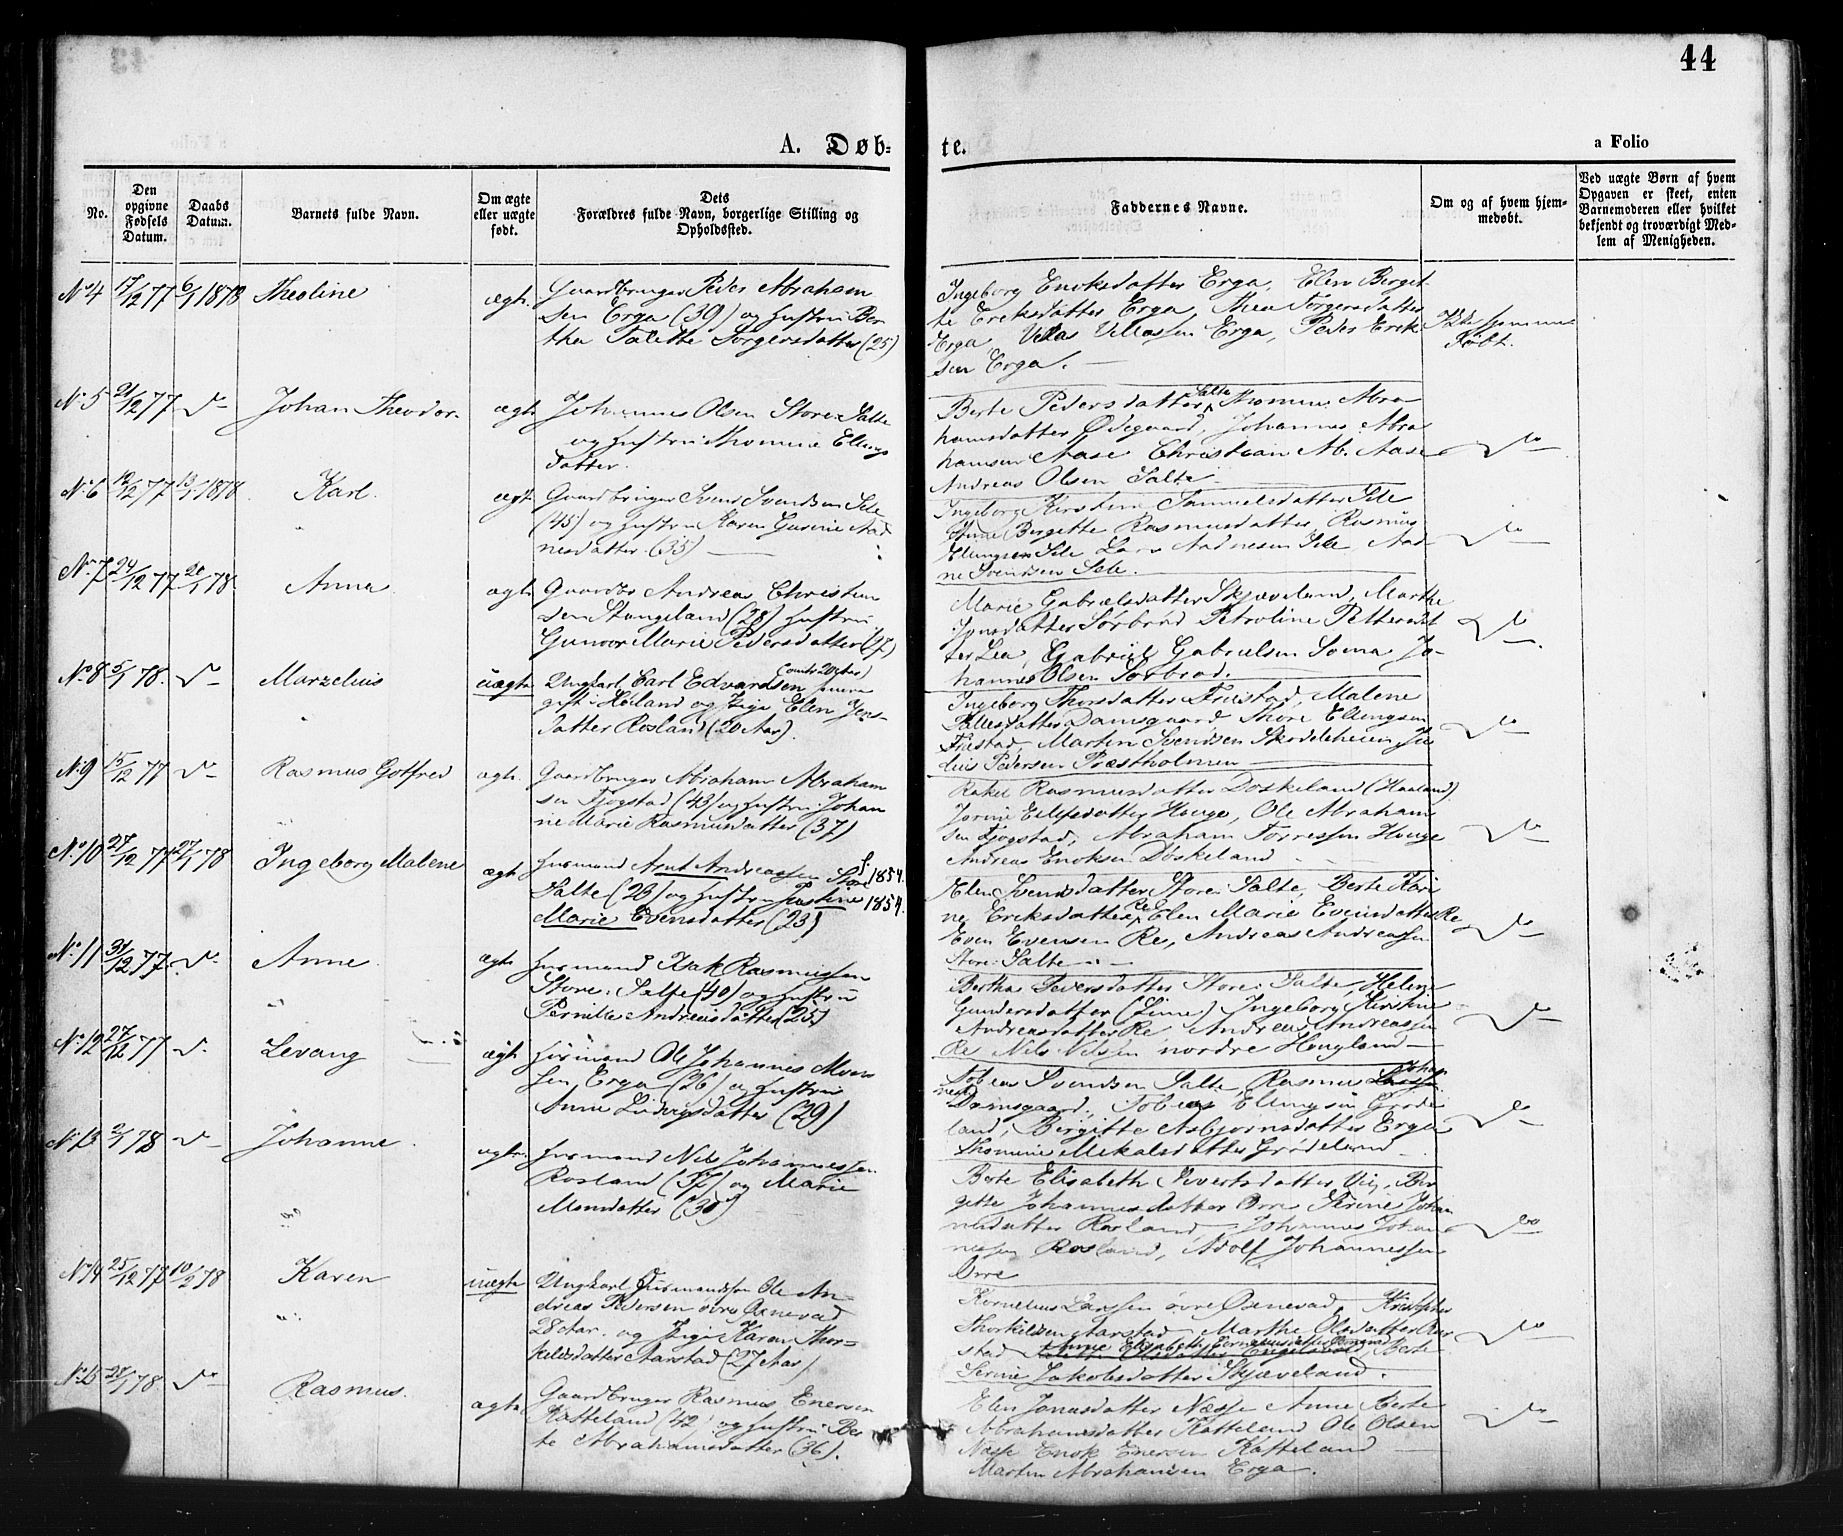 44
A. Døbte.
a Folio
No.
Den opgivne Fødsels Datum.
Daabs Datum.
Barnets fulde Navn.
Om ægte eller uægte født.
Dets Forældres fulde Navn, borgerlige Stilling og Opholdssted.
Faddernes Navne.
Om og af hvem hjemmedøbt.
Ved uægte Børn af hvem Opgaven er skeet, enten Barnemoderen eller hvilket bekjendt og troværdigt Medlem af Menigheden.
No 4 17/12 77 6/1 1878 Theoline ægt. Gaardbruger Peder Abraham
sen Erga (39) og Hustru Ber
tha Talette Torgersdatter (25)
Ingeborg Enoksdatter Erga, Elen Berget
te Eriksdatter Erga, Thea Torgersdatter
Erga, Villas Villassen Erga, Peder Erik
sen Erga.
Ikke hjemme
døbt.
No 5 21/12 77 do Johan Theodor ægt. Johannes Olsen Store Salte
og Hustru Thomine Ellings
datter.
Berte Pedersdatter Salte Thomine Abra
hamsdatter Ødegaard, Johannes Abra
hamsen Aase Christian Ab. Aase
Andreas Olsen Salte
do
No 6 12/12 77 13/1 1878 Karl. ægt. Gaardbruger Svend Svendsen Sele
(45) og Hustru Karen Gurine Aad
nesdatter (35)
Ingeborg Kirstine Samuelsdatter Sele
Birgitte Rasmusdatter, Rasmus
Ellingsen Sele Lars Aadnesen Sele Aad
ne Svendsen Sele.
do
No 7 24/12 77 20/1 78. Anna ægt. Andreas Christian
sen Stangeland (28) Hustru
Gunvor Marie Pedersdatter
Marie Gabrielsdatter Skjæveland, Marthe
Jonsdatter Sørbrød Petroline Pettersdat
ter Lea, Gabriel Gabrielsen Soma Jo-
hannes Olsen Sørbrød.
do
No 8 5/1 78. do Marzelius uægte Ungkarl Carl Edvardsen
gift Høiland og Pige Elen Jens
datter Rosland (20 Aar).
Ingeborg Thorsdatter Friestad, Malene
Pallesdatter Damsgaard Thore Ellingsen
Friestad, Martin Svendsen Skodeheien Ju
lius Pedersen Præstholmen
do
No 9 15/12 77 do Rasmus Gotfred ægt. Gaardbruger Abraham Abraham
sen Tjøgstad (43) og Hustru Johan
ne Marie Rasmusdatter (37)
Rakel Rasmusdatter Døskeland (Haaland)
Jorine Eilefsdatter Houge, Ole Abraham
sen Tjøgstad, Abraham Torressen Houge
Andreas Enoksen Døskeland
do
No 10 27/12 77 27/1 78 Ingeborg Malene ægt. Husmand Arnt Andreassen Store f. 1854.
Salte (23) og Hustru Justine 1854.
Marie Evensdatter (23)
Elen Svendsdatter Store Salte, Berte Kari
ne Eriksdatter Re, Elen Marie Evensdatter Re
Even Evensen Re, Andreas Andreassen
Store Salte
do
No 11 31/12 77. do Anne ægt. Husmand Isak Rasmussen
Store Salte (40) og Hustru
Pernille Andreasdatter (25)
Bertha Pedersdatter Store Salte, Heline
Gundersdatter (Lime) Ingeborg Kirstine
Andreasdatter Re Andreas Andreassen
Re Nils Nilssen nordre Hougland
do
No 12 27/12 77 do Levang ægt. Husmand Ole Johannes Mons
sen, Erga (26) og Hustru
Anne Ludvigsdatter (29)
Tobias Svendsen Salte, Rasmus Johan
Damsgaard, Tobias Ellingsen Grøde
land, Birgitte Asbjørnsdatter Erga
Thomine Mekalsdatter Grødeland
do
No 13 2/1 78 do Johanne. ægte. Husmand Nils Johannessen
Rosland (37) og Marie
Monsdatter (30)
Berte Elisabeth Sivertsdatter Vig, Bir
gitte Johannesdatter Orre Serine Johan
nesdatter Rosland, Johannes Johan
nessen Rosland, Adolf Johannessen
Orre
do
No 14 25/12 77 10/2 78 Karen uægte Ungkarl Husmandssøn Ole An-
dreas Pedersen øvre Øxnevad
28 Aar. og Pige Karen Thor-
kildsdatter Aarstad (27 Aar)
Kornelius Larssen øvre Øxnevad, Kristopher
Thorkildsen Aarstad Marthe Olsdatter Aar
stad Anne Elisabeth Corneliusdatter Øxnevad Berte
Serine Jakobsdatter Skjæveland.
do
No 15 20/1 78 do Rasmus. ægte Gaardbruger Rasmus Enersen
Katteland (42) og Hustru Ber
te Abrahamsdatter (36).
Elen Jonasdatter Næsse Anne Berte
Abrahamsdatter Katteland Ole Olsen
Næsse Enok Enersen Katteland
Martin Abrahamsen Erga.
do